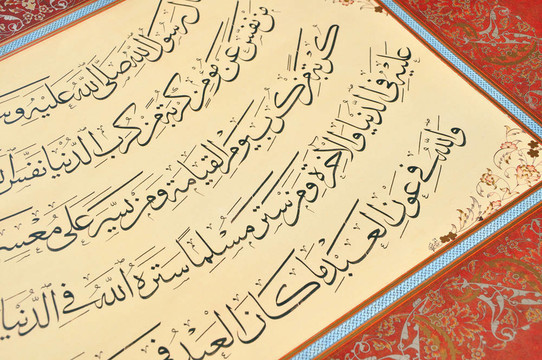 رسول الله صلى الله عليه وس
من نفس عن مؤمن كربة من كرب الدنيا نفس
كربة من كرب يوم القيامة ومن يسر على معسر
عليه في الدنيا والآخرة ومن ستر مسلما ستره الله في الدنيا
والله في عون العبد ما كان العبد في